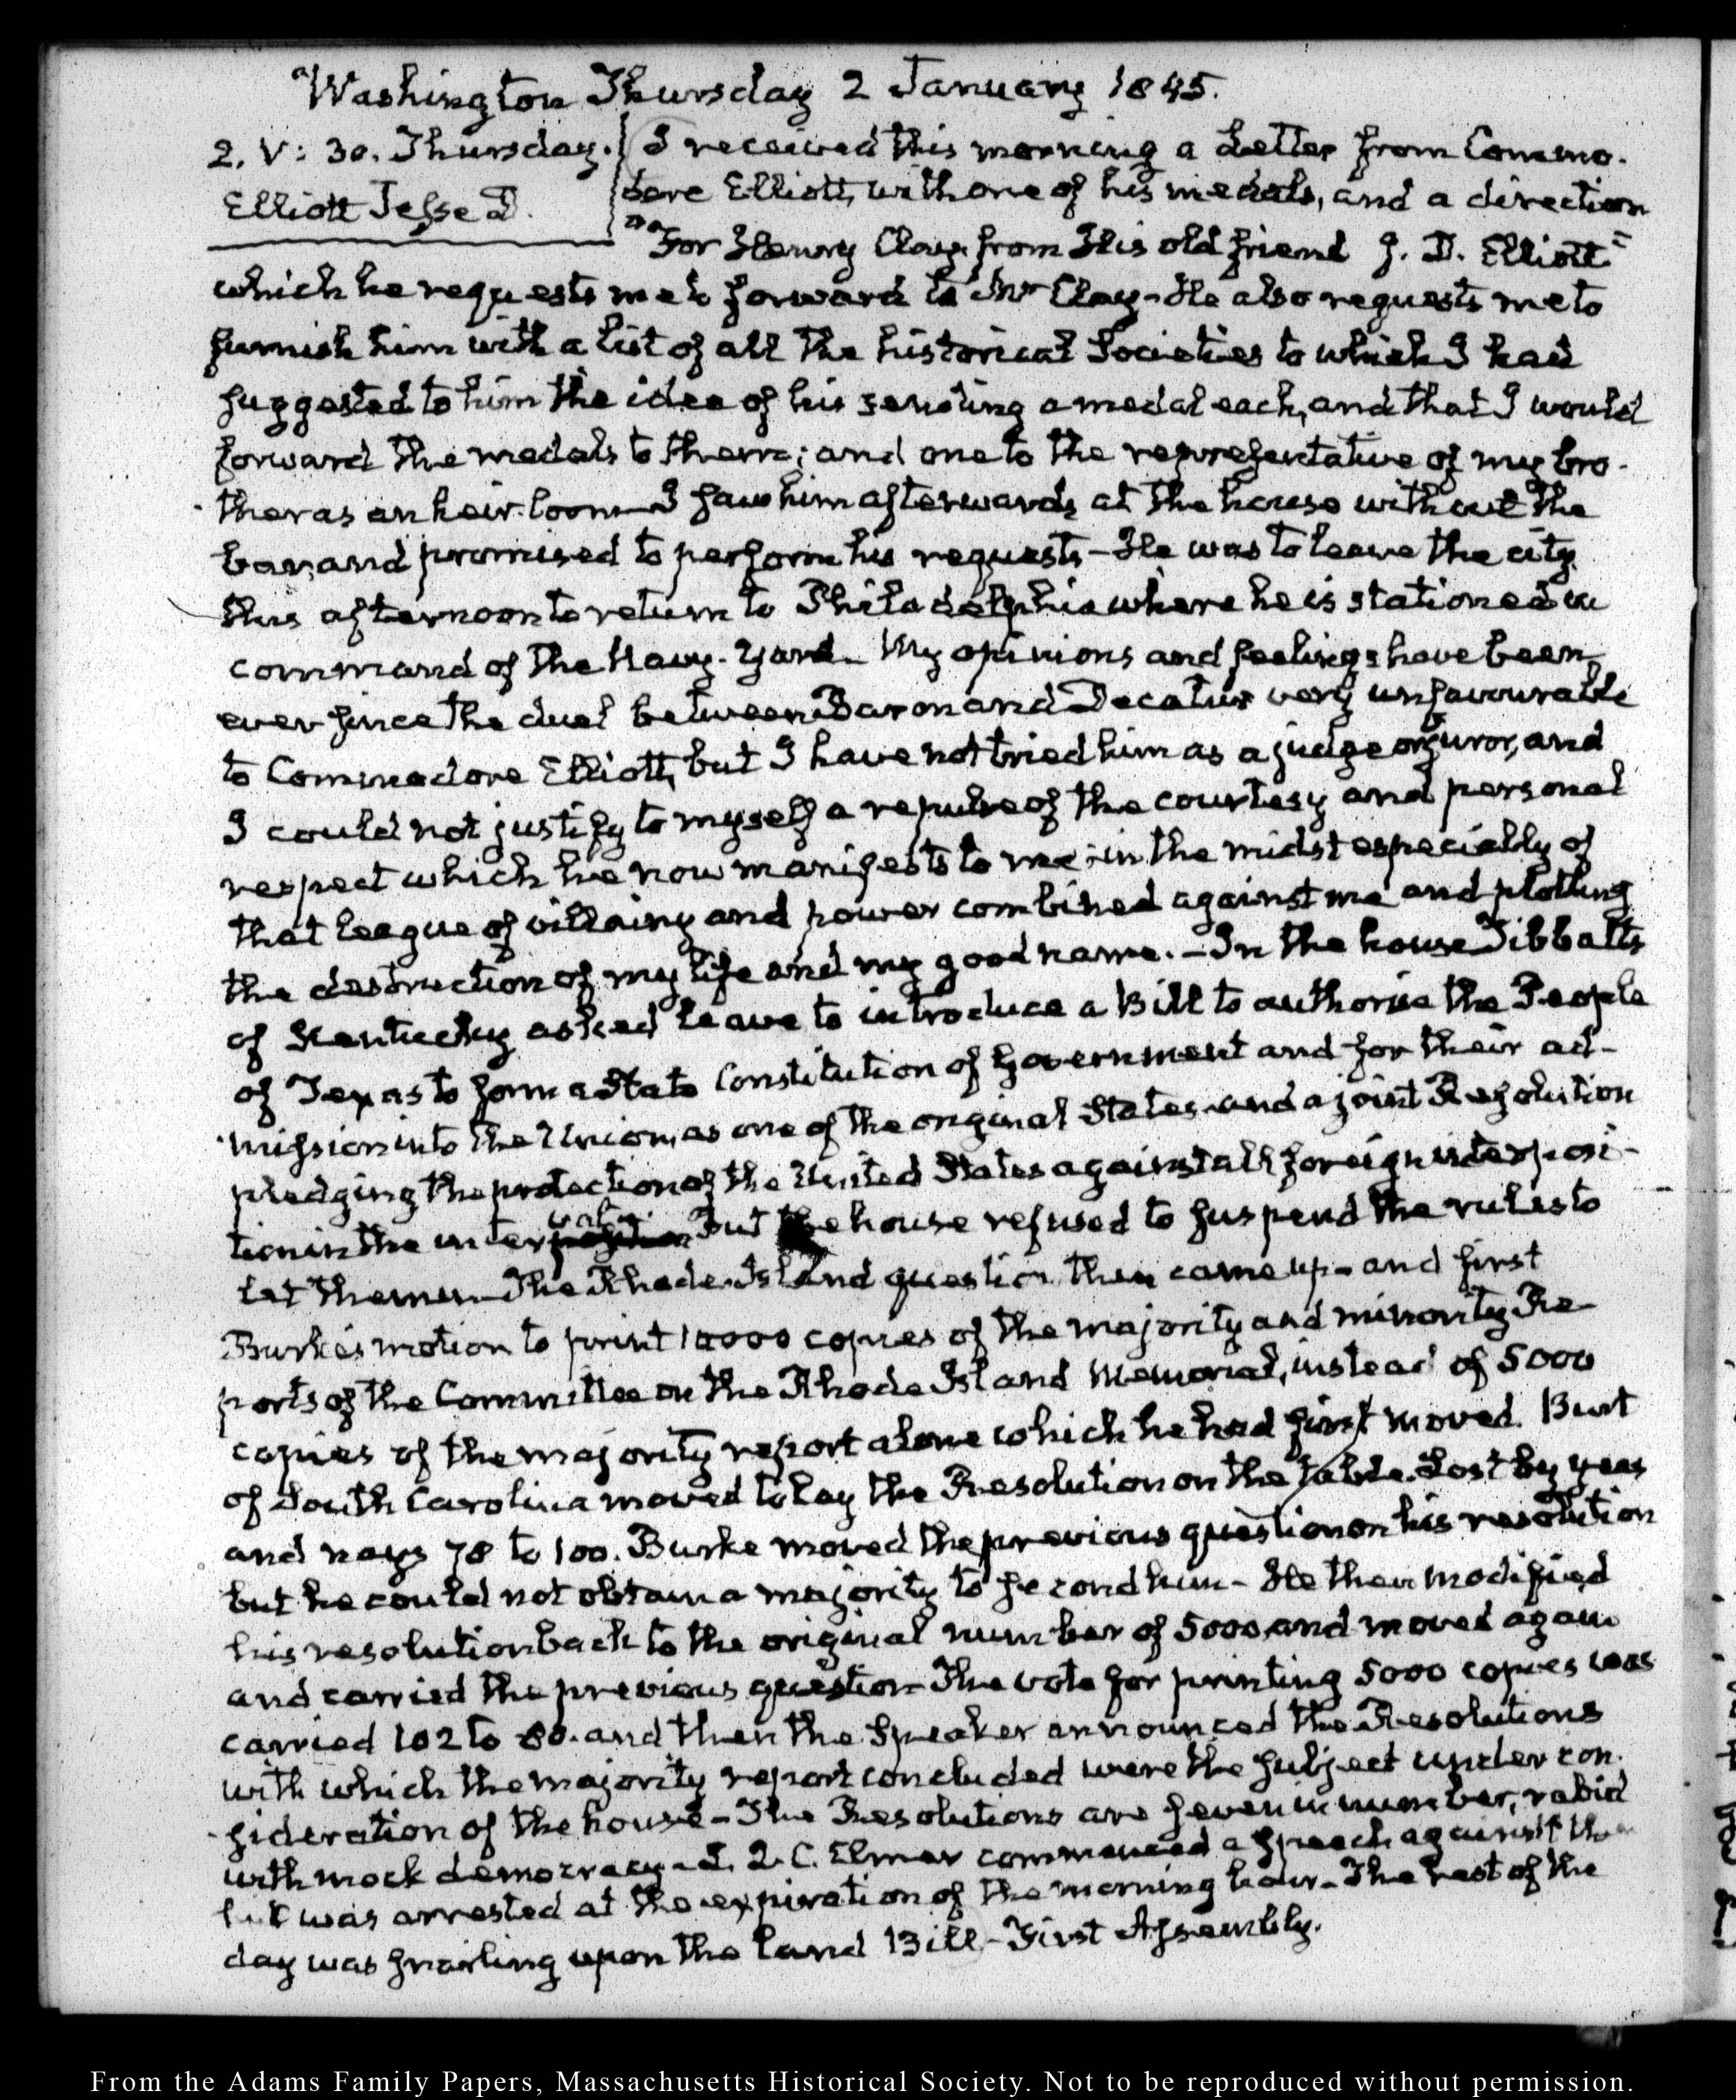 Washington Thursday 2 January 1845.
2. V: 30. Thursday. I received this morning a Letter from Commo-
Elliott Jesse D. dore Elliott, with one of his medals, and a direction
"For Henry Clay from His old friend J. D. Elliott"
which he requests me to forward to Mr Clay - He also requests me to
furnish him with a list of all the historical Societies to which I had
suggested to him the idea of his sending a medal each, and that I would
forward the medals to them; and one to the representative of my bro-
ther as an heir-loom - I saw him afterwards at the house without the
bar, and promised to perform his requests - He was to leave the city
this afternoon to return to Philadelphia where he is stationed in
command of the Navy-Yard. My opinions and feelings have been
ever since the duel between Baron and Decatur very unfavourable
to Commodore Elliott, but I have not tried him as a judge or juror, and
I could not justify to myself a repulse of the courtesy and personal
respect which he now manifests to me; in the midst especially of
that league of villainy and power combined against me and plotting
the destruction of my life and my good name. - In the house Tibbatts
of Kentucky asked leave to introduce a Bill to authorise the People
of Texas to form a State Constitution of Government and for their ad-
mission into the Union, as one of the original States and a joint Resolution
pledging the protection of the United States against all foreign interposi-
tion in the interval. But the house refused to suspend the rules to
let them in - The Rhode-Island question then came up - and first
Burke's motion to print 10000 copies of the majority and minority Re-
ports of the Committee on the Rhode Island Memorial, instead of 5000
copies of the majority report alone which he had first moved. Burt
of South Carolina moved to lay the Resolution on the table. Lost by yeas
and nays 78 to 100. Burke moved the previous question on his resolution
but he could not obtain a majority to second him - He then modified
his resolution back to the original number of 5000, and moved again
and carried the previous question - The vote for printing 5000 copies was
carried 102 to 80. and then the Speaker announced the Resolutions
with which the majority report concluded were the subject under con-
sideration of the house - The Resolutions are seven in number, rabid
with mock democracy - L. Q. C. Elmer commenced a speech against them
but was arrested at the expiration of the morning hour - The rest of the
day was snarling upon the Land Bill - First Assembly.
From the Adams Family Papers, Massachusetts Historical Society. Not to be reproduced without permission.